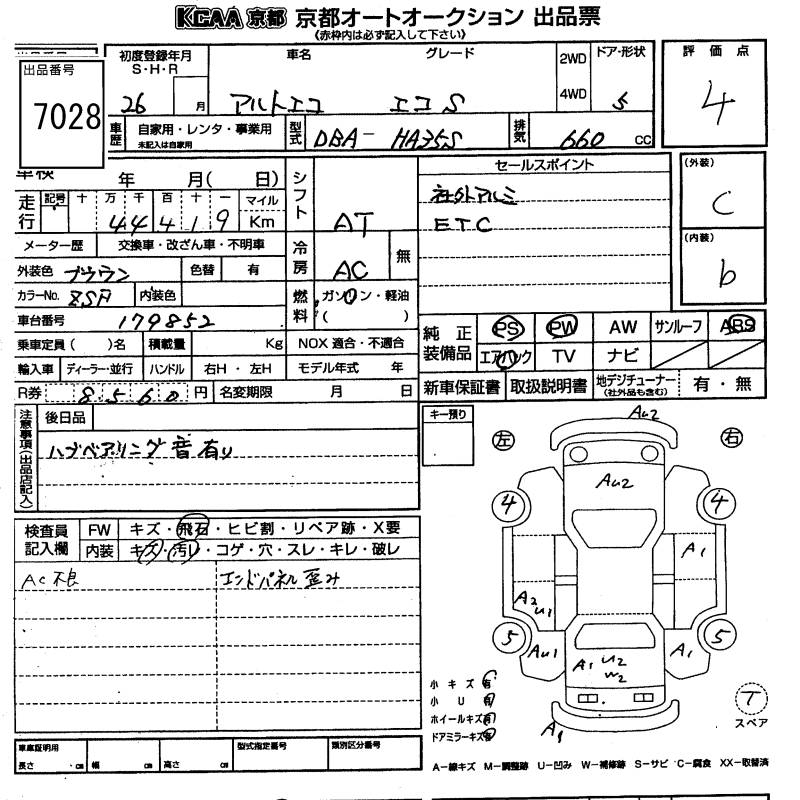 KCAA 京都 京都オートオークション 出品票
《赤枠内は必ず記入して下さい》
出品番号
7028
初度登録年月
S・H・R
26 月
車名
アルトエコ
グレード
エコS
2WD
4WD
ドア・形状
5
評価点
4
車歴
自家用・レンタ・事業用
未記入は自家用
型式
DBA- HA35S
排気
660 CC
車検 年 月( 日)
走行
記号 十 万 千 百 十 一
4 4 4 1 9
マイル
Km
メーター歴 交換車・改ざん車・不明車
外装色 ブラウン 色替 有
カラーNo. ZSA 内装色
車台番号 179852
乗車定員( )名 積載量 Kg
輸入車 ディーラー・並行 ハンドル 右H・左H
R券 8560円 名変期限 月 日
シフト AT
冷房 AC 無
燃料 ガソリン・軽油
( )
NOX 適合・不適合
モデル年式 年
セールスポイント
社外アルミ
ETC
(外装)
C
(内装)
b
純正装備品
PS PW AW サンルーフ ABS
エアバック TV ナビ
新車保証書 取扱説明書 地デジチューナー
(社外品も含む) 有・無
注意事項(出品店記入)
後日品
ハブベアリング音有り
キー預り
検査員記入欄
FW キズ・飛石・ヒビ割・リペア跡・X要
内装 キズ・汚レ・コゲ・穴・スレ・キレ・破レ
AC不良
エンドパネル歪み
左 右
AU2
AU2
4 4
A1
A2
U1
5 5
AU1
A1 U2
W2
A1
A1
小キズ有
小U有
ホイールキズ有
ドアミラーキズ有
T
スペア
車庫証明用
長さ ・cm 幅 cm 高さ cm
型式指定番号
類別区分番号
A−線キズ M−調整跡 U−凹み W−補修跡 S−サビ C−腐食 XX−取替済